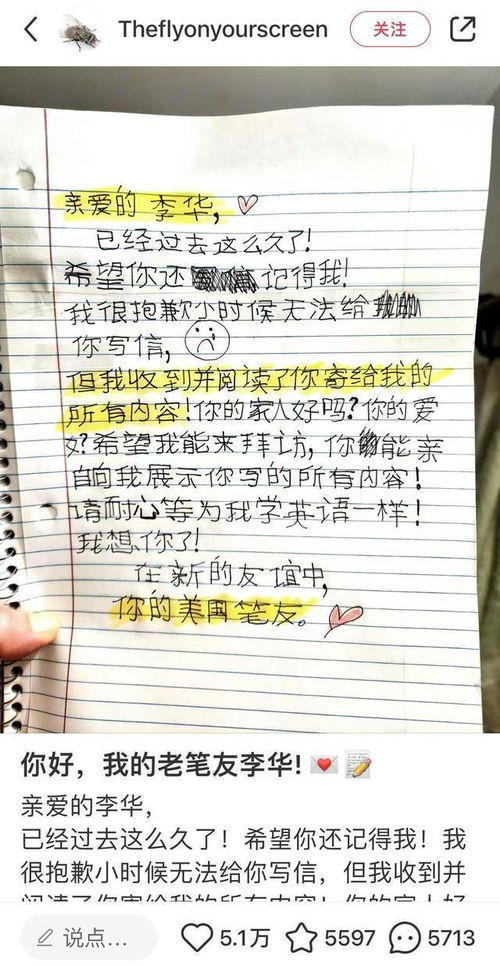 Theflyonyourscreen
关注
亲爱的 李华,
已经过去这么久了!
希望你还 记得我!
我很抱歉小时候无法给
你写信,
但我收到并阅读了你寄给我的
所有内容!你的家人好吗?你的爱
好?希望我能来拜访,你 能亲
自向我展示你写的所有内容!
请耐心等为我学英语一样!
我想你了!
在新的友谊中,
你的美国笔友。
你好，我的老笔友李华!
亲爱的李华，
已经过去这么久了！希望你还记得我！我
很抱歉小时候无法给你写信，但我收到并
阅读了你寄给我的所有内容！你的家人好
说点...
5.1万
5597
5713